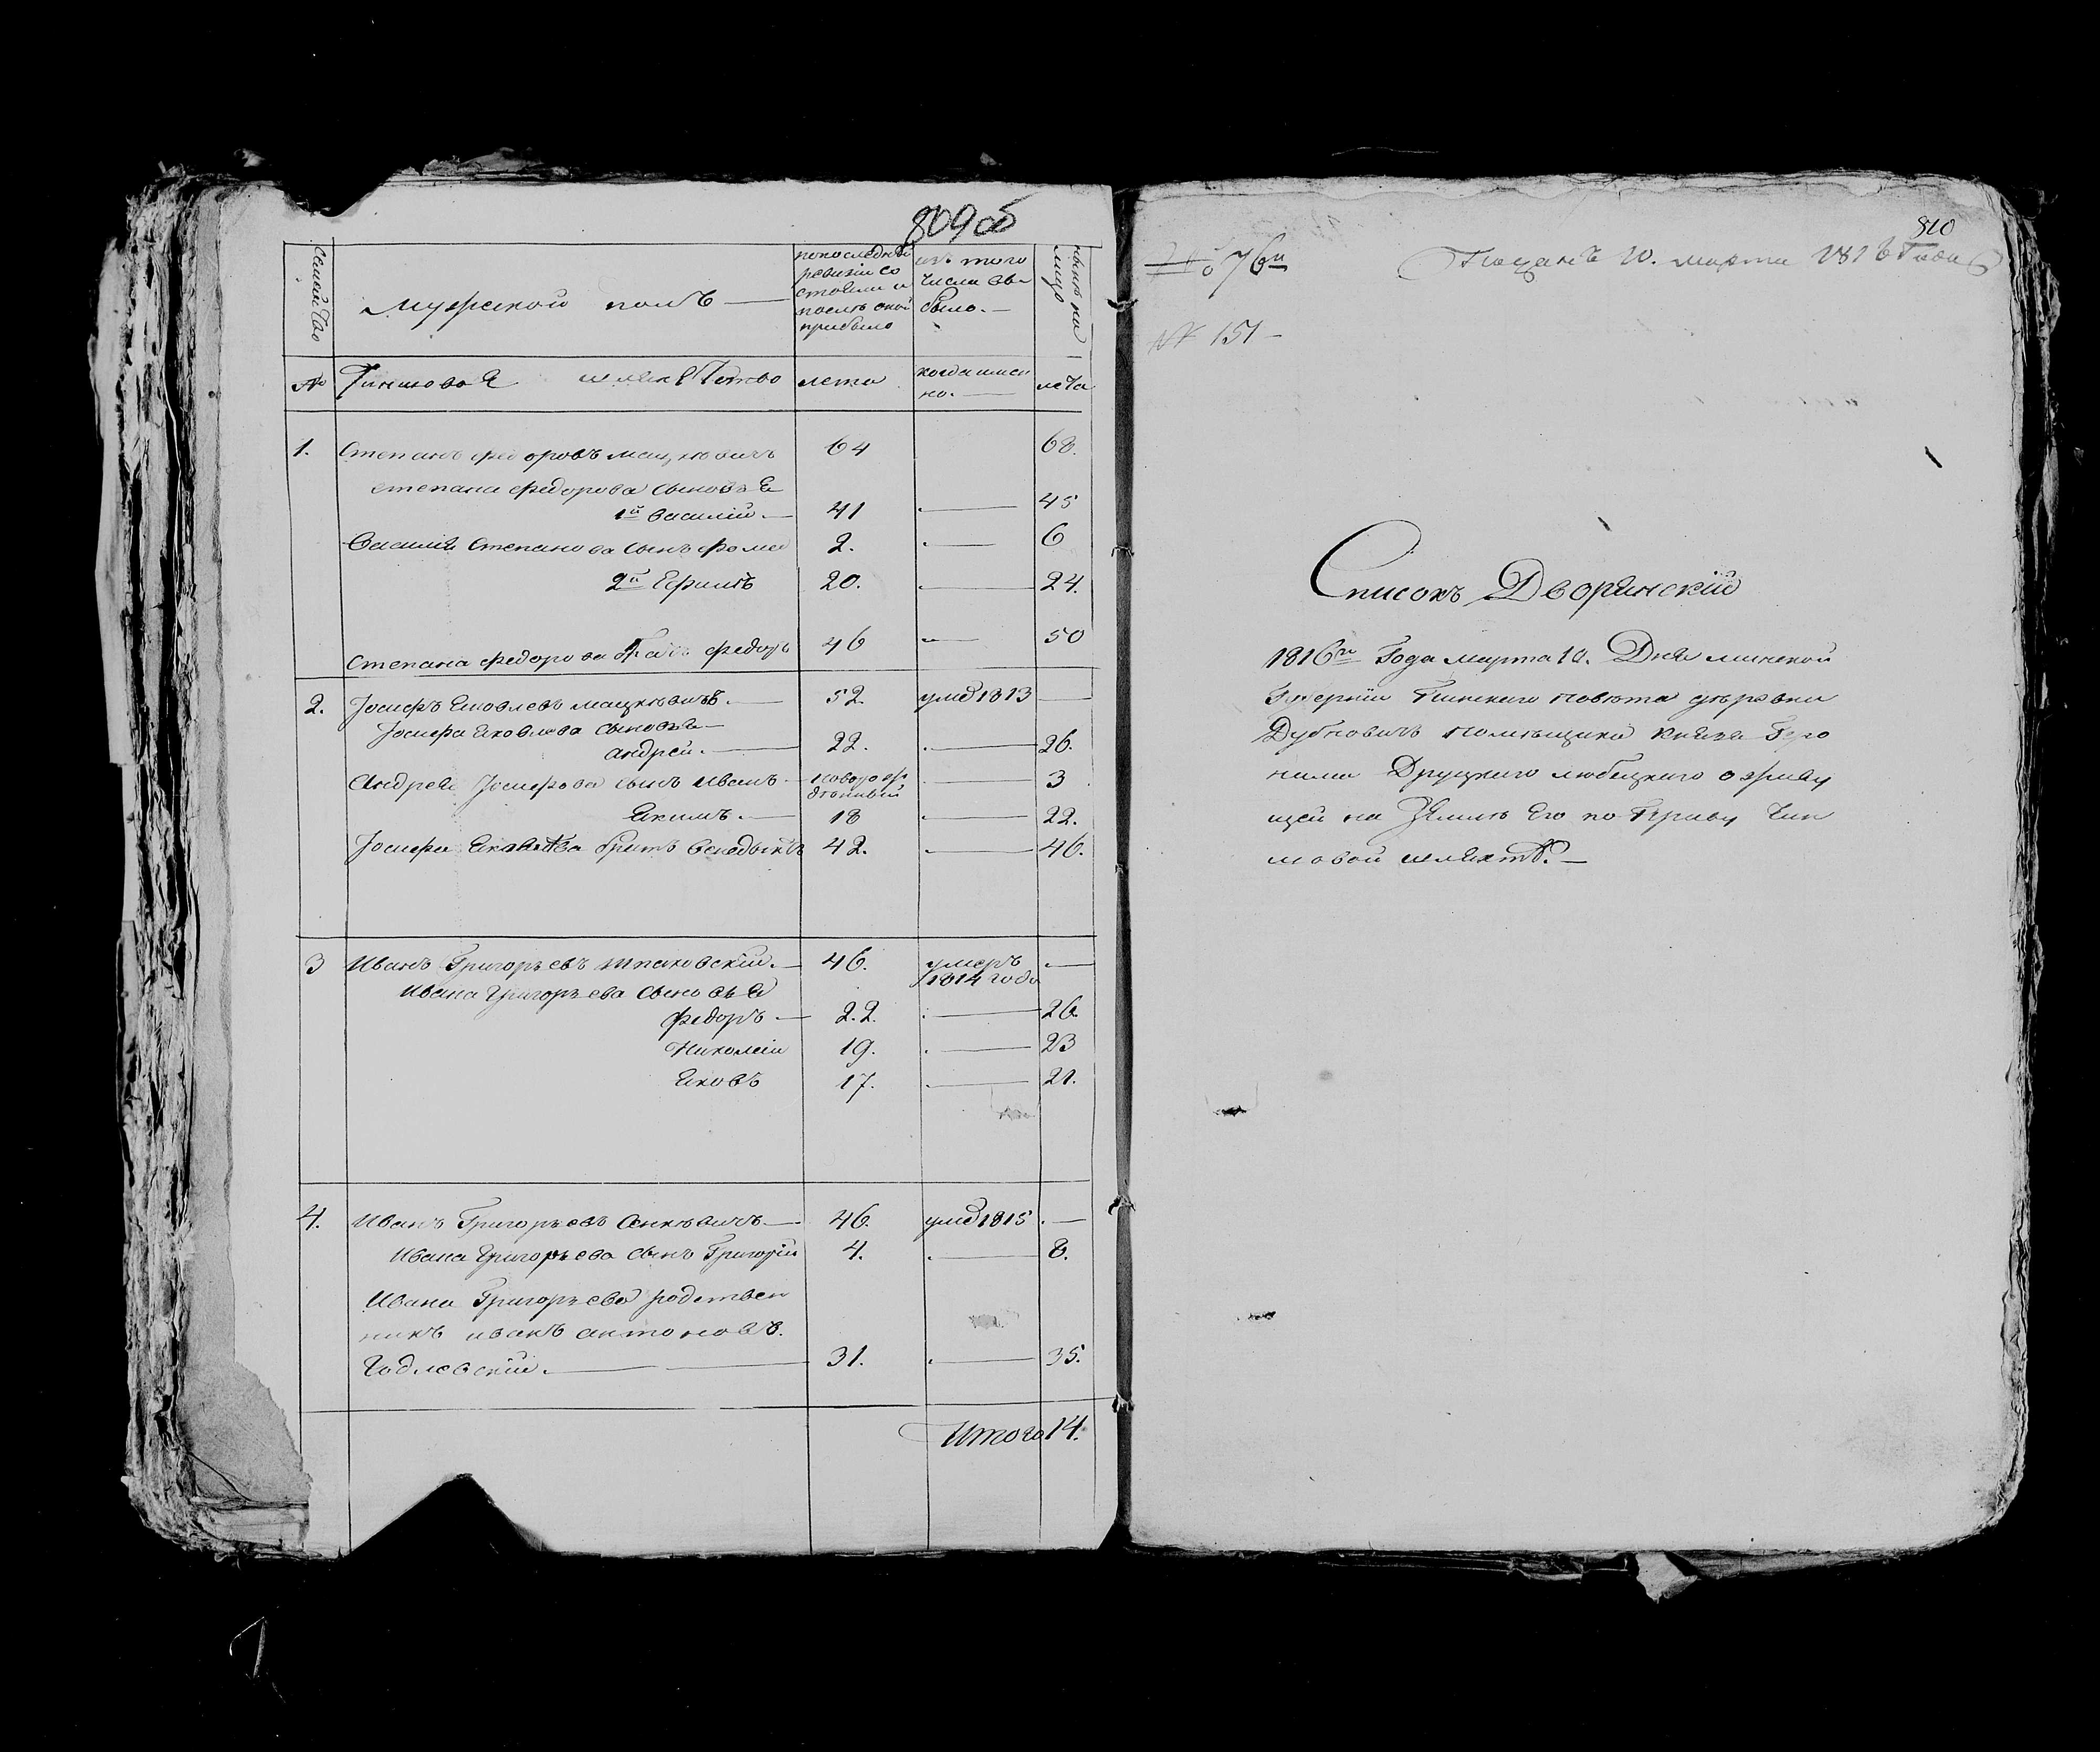 809 об
Семействo
Мужеской полъ —
по последней
ревизіи со
стояли и
после оной
прибыло
изъ того
числа вы
было. —
ныне на
лицо
№ Чиншовая шляхетство лета когда имен
но. — лета
1. Степанъ Федоровъ Мацкевичъ 64 68.
Степана Федорова сыновья
1й Василий. — 41 — 45
Василия Степанова сынъ Фома 2. — 6
2й Ефимъ 20. — 24.
Степана Федорова братъ Федоръ 46 — 50
2. Іосифъ Яковлевъ Мацкевичъ. — 52. уме 1813 —
Іосифа Яковлева сыновья —
Андрей. — 22. — 26.
Андрея Іосифова сынъ Иванъ — новорож
денный — 3
Якимъ. — 18 — 22.
Іосифа Яковлева братъ Венедыктъ 42. — 46.
3 Иванъ Григорьевъ Шпаковскій. — 46. умеръ
1814 года —
Ивана Григорьева сыновья
Федоръ — 22. — 26.
Николай 19. — 23
Яковъ 17. — 21.
4. Иванъ Григорьевъ Сенкевичъ — 46. уме 1815 . —
Ивана Григорьева сынъ Григорій 4. — 8.
Ивана Григорьева родствен
никъ Иванъ Антоновъ.
Годлевскій. — 31. — 35.
Итого 14.
810
№ 76й
Поданъ 10. марта 1816 Года
№ 151 —
Списокъ Дворянскій
1816го Года Марта 10. Дня Минской
Губерніи Пинского повета деревни
Дубновичъ помещика Князя Геро
нима Друцкаго Любецкаго о живу
щей на Земли Его по праву Чин
шовой шляхте. —